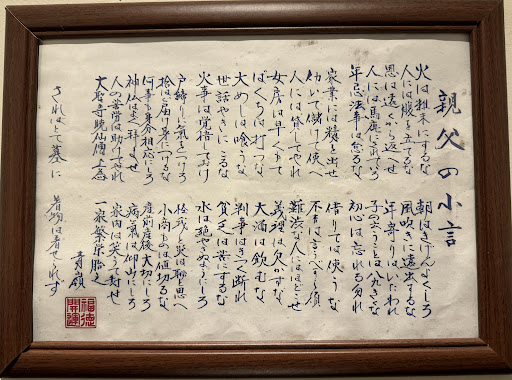 親父の小言
火は粗末にするな 朝はきげんよくしろ
人には腹を立てるな 風吹きに遠出するな
恩は遠くから返へせ 年寄りはいたわれ
人には馬鹿にされていろ 子の云うことは八九きくな
年忌法事は怠るな 初心は忘れる勿れ
家業には精を出せ 借りては使うな
働いて儲けて使へ 不吉は言うべからず
人には貸してやれ 難渋な人にはほどこせ
女房は早くもて 義理は欠かすな
ばくちは打つな 大酒は飲むな
大めしは喰うな 判事はきつく断れ
世話やきになるな 貧乏は苦にするな
火事は覚悟しておけ 水は絶やさぬようにしろ
戸締りに気をつけろ 怪我と災は恥と思へ
拾はば届け身につけるな 小商もの値切るな
何事も身分相応にしろ 産前産後大切にしろ
神仏はよく拝ませ 病気は仰山にしろ
人の苦労は助けてやれ 家内は笑って暮せ
大聖寺暁仙僧上 一家繁栄
さればとて墓に 着物は着せられず
福徳
開運